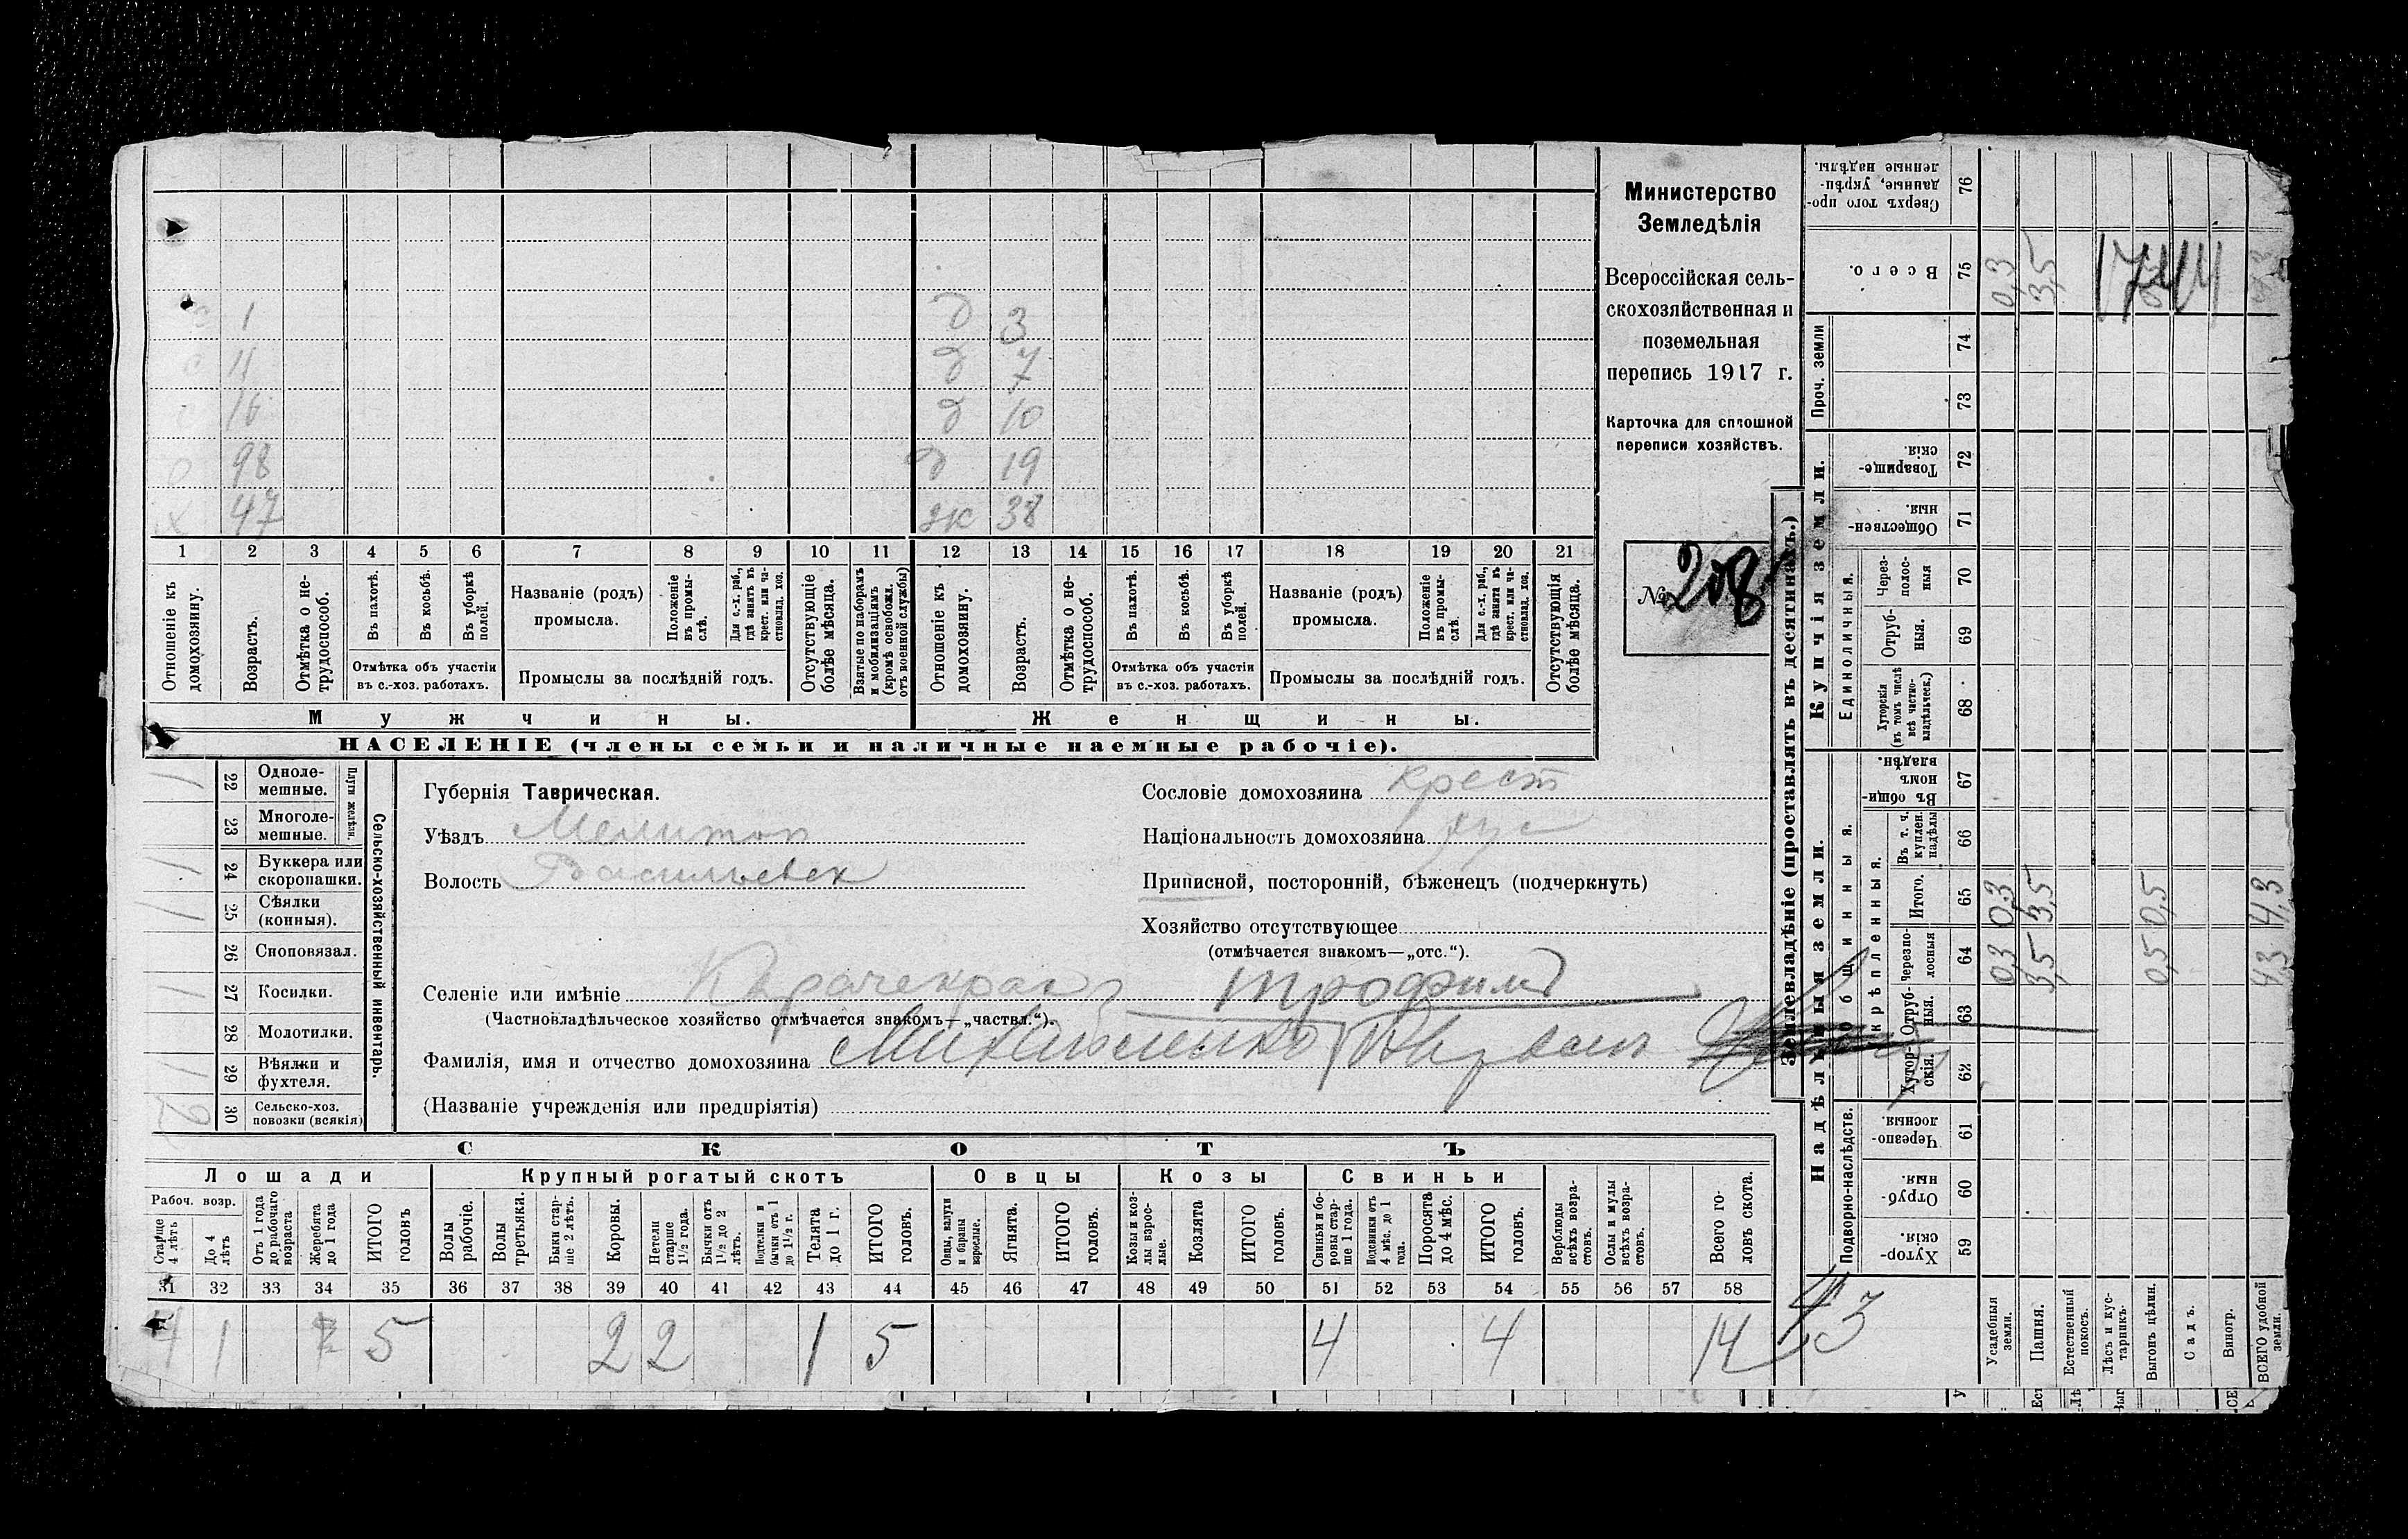 Министерство
Земледѣлія
Всероссійская сель-
скохозяйственная и
поземельная
перепись 1917 г.
Карточка для сплошной
переписи хозяйствъ.
№ 208
с 1 д 3
с 11 д 7
с 16 д 10
о 98 д 19
х 47 ж 38
1 2 3 4 5 6 7 8 9 10 11 12 13 14 15 16 17 18 19 20 21
Отношеніе къ домохозяину.
Возрастъ.
Отмѣтка о не-трудоспособ.
Въ пахотѣ.
Въ косьбѣ.
Въ уборкѣ полей.
Отмѣтка объ участіи
въ с.-хоз. работахъ.
Названіе (родъ)
промысла.
Положеніе въ промы-слѣ.
Для с.-х. раб., гдѣ занятъ въ крест. или ча-стновлад. хоз.
Промыслы за послѣдній годъ.
Отсутствующіе болѣе мѣсяца.
Взятые по наборамъ и мобилизаціямъ (кромѣ освобожд. отъ военной службы)
Отношеніе къ домохозяину.
Возрастъ.
Отмѣтка о не-трудоспособ.
Въ пахотѣ.
Въ косьбѣ.
Въ уборкѣ полей.
Отмѣтка объ участіи
въ с.-хоз. работахъ.
Названіе (родъ)
промысла.
Положеніе въ промы-слѣ.
Для с.-х. раб., гдѣ занята въ крест. или ча-стновлад. хоз.
Промыслы за послѣдній годъ.
Отсутствующія болѣе мѣсяца.
Мужчины. Женщины.
НАСЕЛЕНІЕ (члены семьи и наличные наемные рабочіе).
Сельско-хозяйственный инвентарь.
Плуги желѣзн.
1 22 Одноле-мешные.
23 Многоле-мешные.
1 24 Буккера или скоропашки.
1 25 Сѣялки (конныя).
26 Сноповязал.
1 27 Косилки.
28 Молотилки.
1 29 Вѣялки и фухтеля.
2 30 Сельско-хоз. повозки (всякія)
Губернія Таврическая.
Уѣздъ Мелитоп
Волость Васильевск
Сословіе домохозяина крест
Національность домохозяина рус
Приписной, посторонній, бѣженецъ (подчеркнуть)
Хозяйство отсутствующее
(отмѣчается знакомъ—„отс.“).
Селеніе или имѣніе Карачекрак
Трофим
(Частновладѣльческое хозяйство отмѣчается знакомъ—„частвл.“).
Фамилія, имя и отчество домохозяина Михайленко
(Названіе учрежденія или предпріятія)
СКОТЪ
Лошади Крупный рогатый скотъ Овцы Козы Свиньи
Рабоч. возр.
Старше 4 лѣтъ
До 4 лѣтъ
Отъ 1 года до рабочаго возраста
Жеребята до 1 года
ИТОГО головъ
Волы рабочіе.
Волы третьяки.
Быки стар-ше 2 лѣтъ.
Коровы.
Нетели старше 1 1/2 года.
Бычки отъ 1 1/2 до 2 лѣтъ.
Подтелки и бычки отъ 1 до 1 1/2 г.
Телята до 1 г.
ИТОГО головъ.
Овцы, валухи и бараны взрослые.
Ягнята.
ИТОГО головъ.
Козы и коз-лы взрос-лые.
Козлята
ИТОГО головъ.
Свиньи и бо-ровы стар-ше 1 года.
Подсвинки отъ 4 мѣс. до 1 года.
Поросята до 4 мѣс.
ИТОГО головъ.
Верблюды всѣхъ возра-стовъ.
Ослы и мулы всѣхъ возра-стовъ.
Всего го-ловъ скота.
31 32 33 34 35 36 37 38 39 40 41 42 43 44 45 46 47 48 49 50 51 52 53 54 55 56 57 58
4 1 5 2 2 1 5 4 4 14
43
Землевладѣніе (проставлять въ десятинахъ.)
Надѣльныя земли. Купчія земли.
Подворно-наслѣдств.
Общинныя.
Укрѣпленныя.
Единоличныя.
Проч. земли
59 Хутор-скія.
60 Отруб-ныя.
61 Черезпо-лосныя.
62 Хутор-скія.
63 Отруб-ныя.
64 Черезпо-лосныя
65 Итого.
66 Въ т. ч. куплен. надѣлы
67 Въ общин-номъ владѣн.
68 Хуторскія (въ томъ числѣ всѣ частно-владѣльческ.)
69 Отруб-ныя.
70 Через-полос-ныя
71 Обществен-ныя.
72 Товарище-скія.
73
74
75 Всего.
76 Сверхъ того про-данные, укрѣп-ленные надѣлы.
Усадебныя земли. 0,3 0,3 0,3
Пашня. 3,5 3,5 3,5
Естественный покосъ.
Лѣсъ и кус-тарникъ.
Выгонъ цѣлин. 0,5 0,5
Садъ.
Виногр.
ВСЕГО удобной земли. 4,3 4,3 4,3
1744